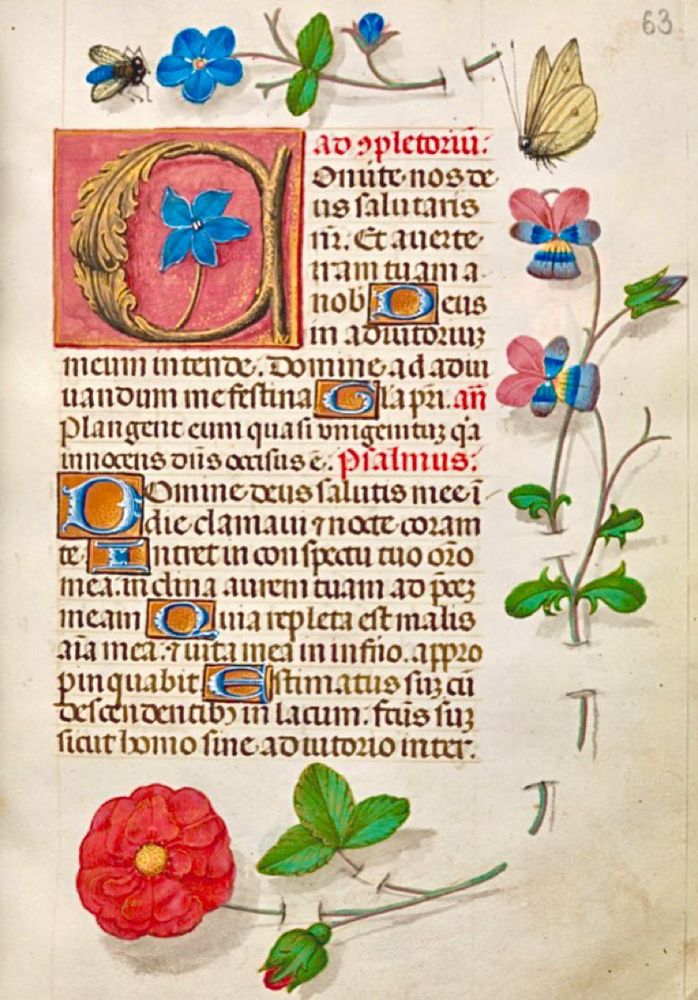 63
ad ꝯpletoriū:
COnūte nos de
us salutaris
nr̄. Et auerte
iram tuam a
nob Deus
in adiutoriuꝫ
meum intende. Domine ad adiu
uandum me festina Gl̄a pr̄i. an̄
Plangent eum quasi vnigenituꝫ q̄a
innocens dn̄s occisus ē. Psalmus:
DOmine deus salutis mee ī
die clamaui ⁊ nocte coram
te Intret in conspectu tuo or̄o
mea. inclina aurem tuam ad p̄ceꝫ
meam Quia repleta est malis
aīa mea. ⁊ uita mea in inf̄no. appro
pinquabit Estimatus suꝫ cū
descendentibꝫ in lacum. fc̄us suꝫ
sicut homo sine adiutorio inter.